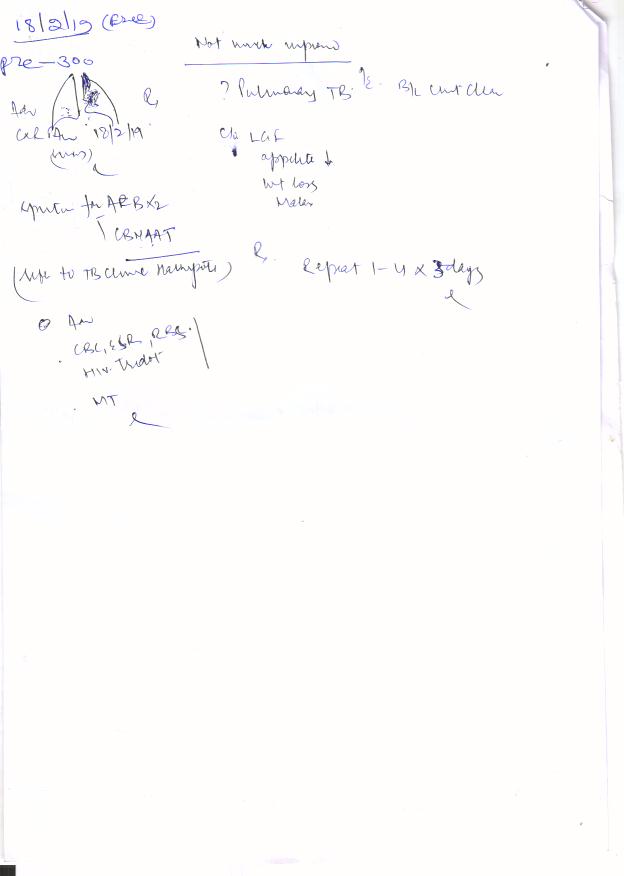 18/2/19 (Free)
Not much improve
pre-300
? Pulmonary TB. B/L chest clear
Adv R
CXR 18/2/19
C/o LGF
appetite ↓
Wt loss
Sputum for AFB x2
CBNAAT
(Refer to TB Clinic) R
Repeat 1-4 x 3 days
Adv
CBC, ESR, RBS.
HIV. Tridot
MT